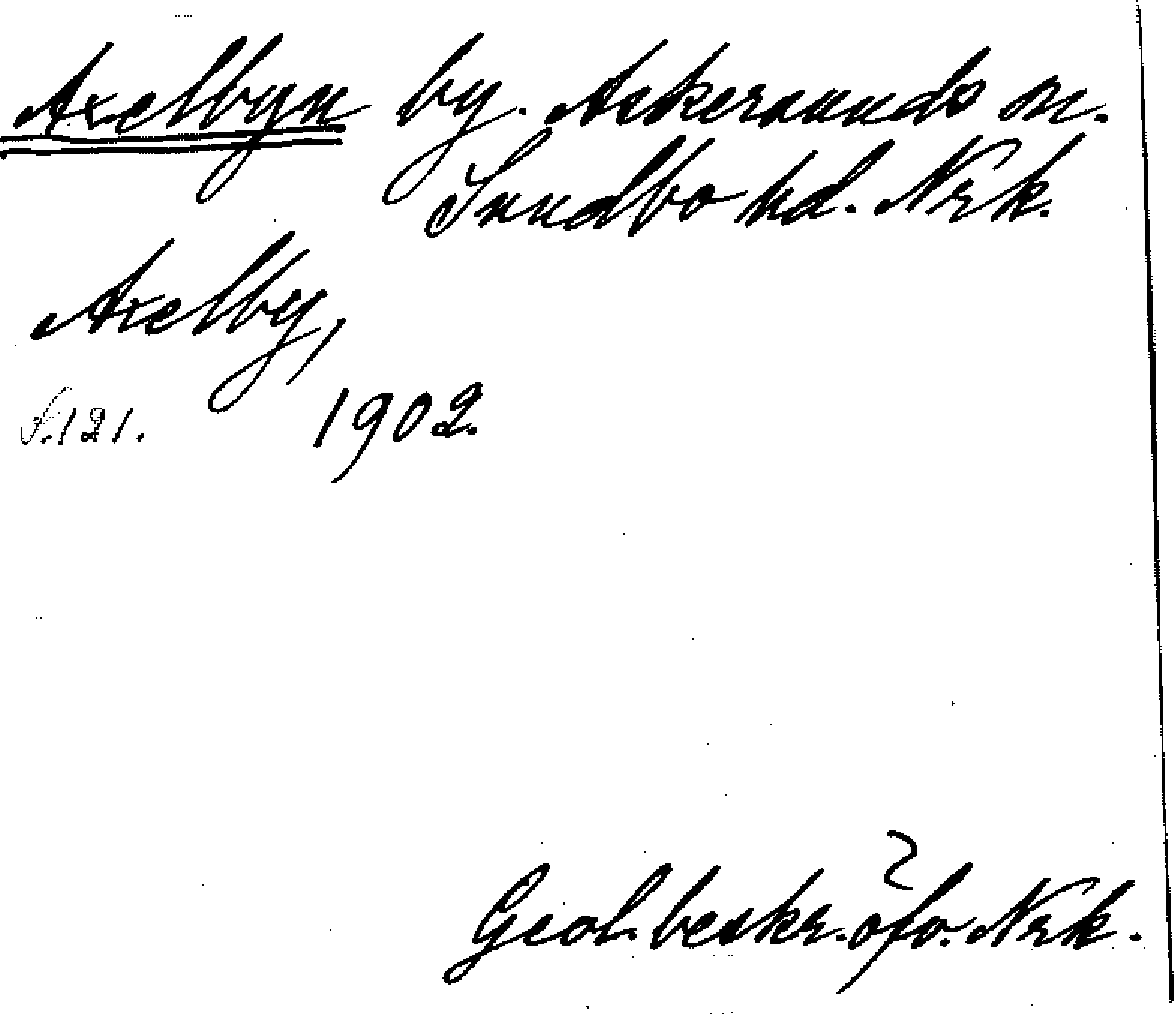 Axelbyn by. Askersunds sn.
Sundbo hd. Nrk.
Axelby,
S.121. 1902.
Geol. beskr. öfv. Nrk.